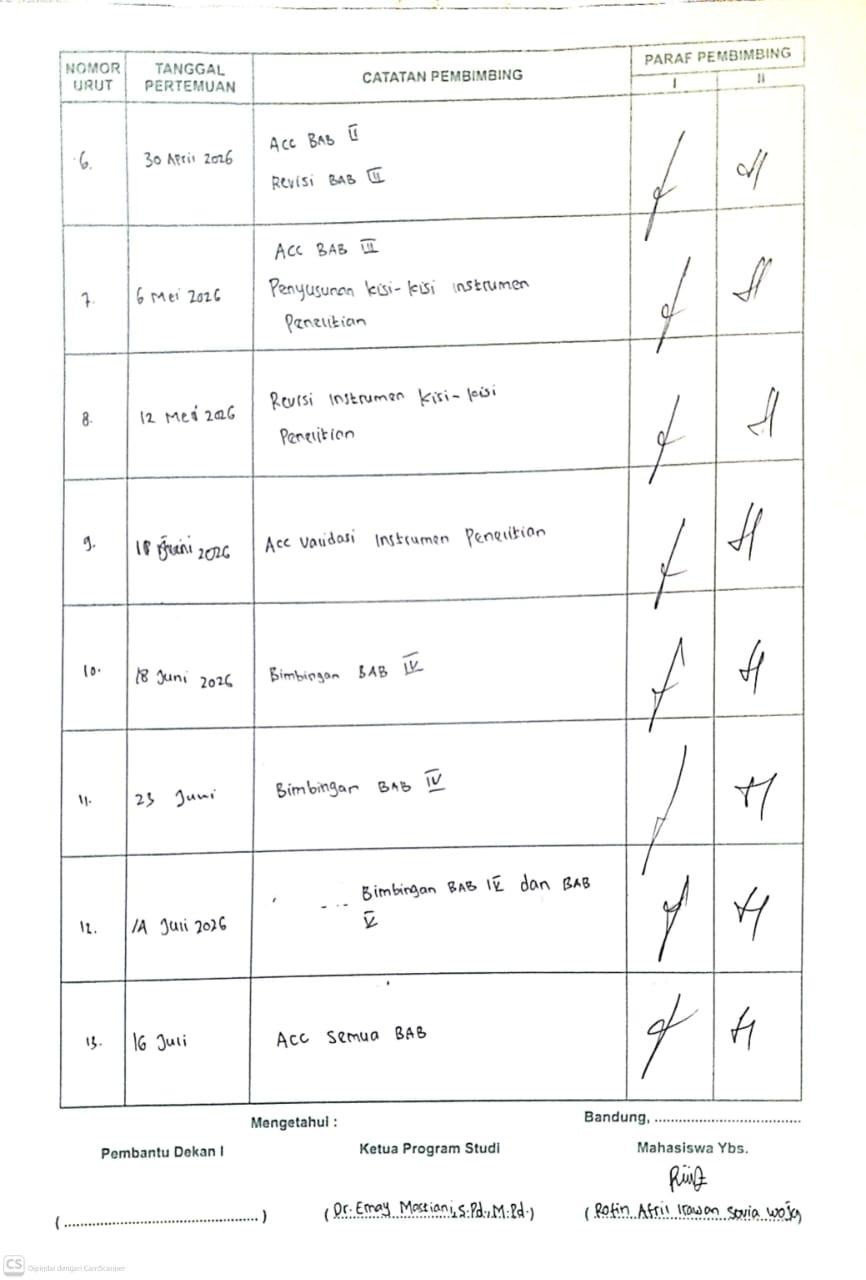 NOMOR URUT
TANGGAL PERTEMUAN
CATATAN PEMBIMBING
PARAF PEMBIMBING
I
II
6.
30 April 2026
Acc BAB II
Revisi BAB III
7.
6 Mei 2026
Acc BAB III
Penyusunan kisi-kisi instrumen
Penelitian
8.
12 Mei 2026
Revisi Instrumen kisi-kisi
Penelitian
9.
Juni 2026
Acc Validasi Instrumen Penelitian
10.
18 Juni 2026
Bimbingan BAB IV
11.
23 Juni
Bimbingan BAB IV
12.
14 Juli 2026
Bimbingan BAB IV dan BAB
V
13.
16 Juli
Acc semua BAB
Mengetahui :
Bandung, ....................................
Pembantu Dekan I
Ketua Program Studi
Mahasiswa Ybs.
( ................................................ )
(Dr. Emay Mastiani, S.Pd., M.Pd.)
(Rofin Afril Irawan
CS Dipindai dengan CamScanner